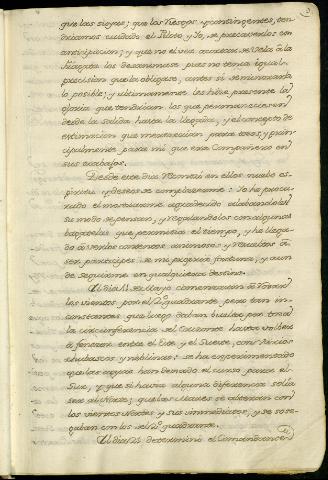 que las sigase; que los riesgos y contingentes, ten
driamos cuidado el Piloto y Yo, se precaverlos con
anticipacion; y que no el ver arrastrar se Vela a la
Fragata los desanimase pues no tenia igual
precision que la obligase, antes si se minorara
lo posible; y ultimamente les hize presente la
gloria que tendrian los que permaneciesen
desde la salida hasta la llegada, y el concepto de
estimacion que merecerian para todos, y prin-
cipalmente para mi que era Compañero en
sus trabajos.
Desde este dia reconocí en ellos nuebo es-
piritu y deseos de complacerme: Yo he procu-
rado el mostrarme agradecido alabandoles
su modo de pensar, y regalandolos con algunas
bagatelas que permitia el tiempo, y he llega-
do a verlos contentos animosos y resueltos a
ser participes de mi propria fortuna, y aun
de seguirme en qualquiera destino.
El dia 11 de Mayo comenzaron a Variar
los vientos por el 2.º quadrante pero tan in-
constantes que luego daban buelta por toda
la circunferencia del Orizonte hasta volber
a fenezer entre el Este y el Sueste, con Varios
chubascos y neblinas: se ha experimentado
que las aguas han tomado el curso para el
Sur, y que si havia alguna diferencia solia
ser al Norte; que las Mares se alteran con
los vientos Nortes y sus inmediatos, y se sose-
gaban con los del 2.º quadrante.
El dia 24 determinó el Comandante